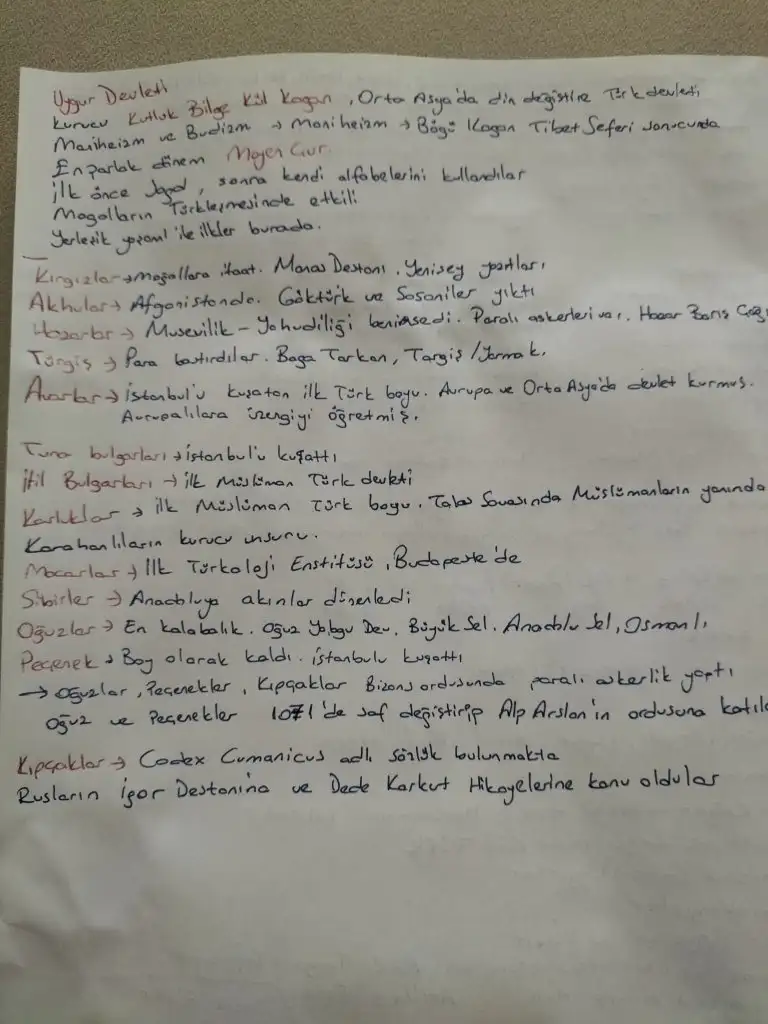 Uygur Devleti
Kurucu Kutluk Bilge Kül Kagan, Orta Asya'da din değiştiren Türk devleti
Maniheizm ve Budizm → Maniheizm → Bögü Kagan Tibet Seferi sonucunda
En parlak dönem Moyen Çur.
İlk önce Soğd, sonra kendi alfabelerini kullandılar
Mogolların Türkleşmesinde etkili
Yerleşik yaşam ile ilkler burada.
Kırgızlar → moğollara itaat. Manas Destanı. Yenisey yazıtları
Akhunlar → Afganistanda. Göktürk ve Sasaniler yıktı
Hazarlar → Musevilik - Yahudiliği benimsedi. Paralı askerleri var. Hazar Barış Çağı
Türgiş → Para bastırdılar. Baga Tarkan, Targiş / Yarmak.
Avarlar → İstanbul'u kuşatan ilk Türk boyu. Avrupa ve Orta Asya'da devlet kurmuş.
Avrupalılara üzengiyi öğretmiş.
Tuna bulgarları → istanbul'u kuşattı
İtil Bulgarları → ilk Müslüman Türk devleti
Karluklar → ilk Müslüman Türk boyu. Talas Savaşında Müslümanların yanında
Karahanlıların kurucu unsuru.
Macarlar → İlk Türkoloji Enstitüsü, Budapeşte'de
Sibirler → Anadoluya akınlar düzenledi
Oğuzlar → En kalabalık. Oğuz Yabgu Dev. Büyük Sel. Anadolu Sel, Osmanlı
Peçenek → Boy olarak kaldı. istanbulu kuşattı
→ Oğuzlar, Peçenekler, Kıpçaklar Bizans ordusunda paralı askerlik yaptı
Oğuz ve Peçenekler 1071'de saf değiştirip Alp Arslan'ın ordusuna
Kıpçaklar → Codex Cumanicus adlı sözlük bulunmakta
Rusların İgor Destanına ve Dede Korkut Hikayelerine konu oldular